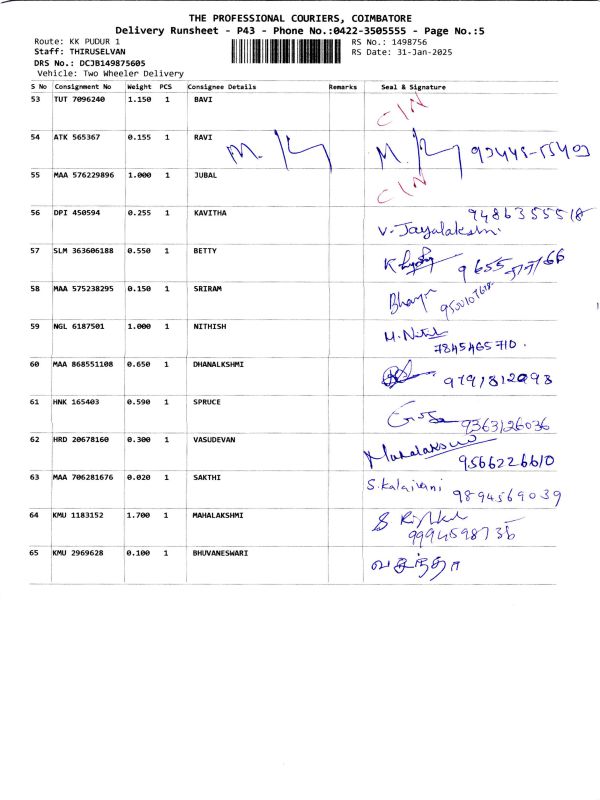 THE PROFESSIONAL COURIERS, COIMBATORE
Delivery Runsheet - P43 - Phone No.:0422-3505555 - Page No.:5
Route: KK PUDUR 1 RS No.: 1498756
Staff: THIRUSELVAN RS Date: 31-Jan-2025
DRS No.: DCJB149875605
Vehicle: Two Wheeler Delivery
S No Consignment No Weight PCS Consignee Details Remarks Seal & Signature
53 TUT 7096240 1.150 1 BAVI C/N
54 ATK 565367 0.155 1 RAVI M. M.
55 MAA 576229896 1.000 1 JUBAL C/N
56 DPI 450594 0.255 1 KAVITHA 9486355518
V. Jayalakshmi
57 SLM 363606188 0.550 1 BETTY
58 MAA 575238295 0.150 1 SRIRAM
59 NGL 6187501 1.000 1 NITHISH M. Nitish
7845465710.
60 MAA 868551108 0.650 1 DHANALKSHMI 9791812098
61 HNK 165403 0.590 1 SPRUCE 9363126036
62 HRD 20678160 0.300 1 VASUDEVAN Mahalakshmi
9566226610
63 MAA 706281676 0.020 1 SAKTHI S. Kalaivani
9894569039
64 KMU 1183152 1.700 1 MAHALAKSHMI
9994598736
65 KMU 2969628 0.100 1 BHUVANESWARI வசந்தா